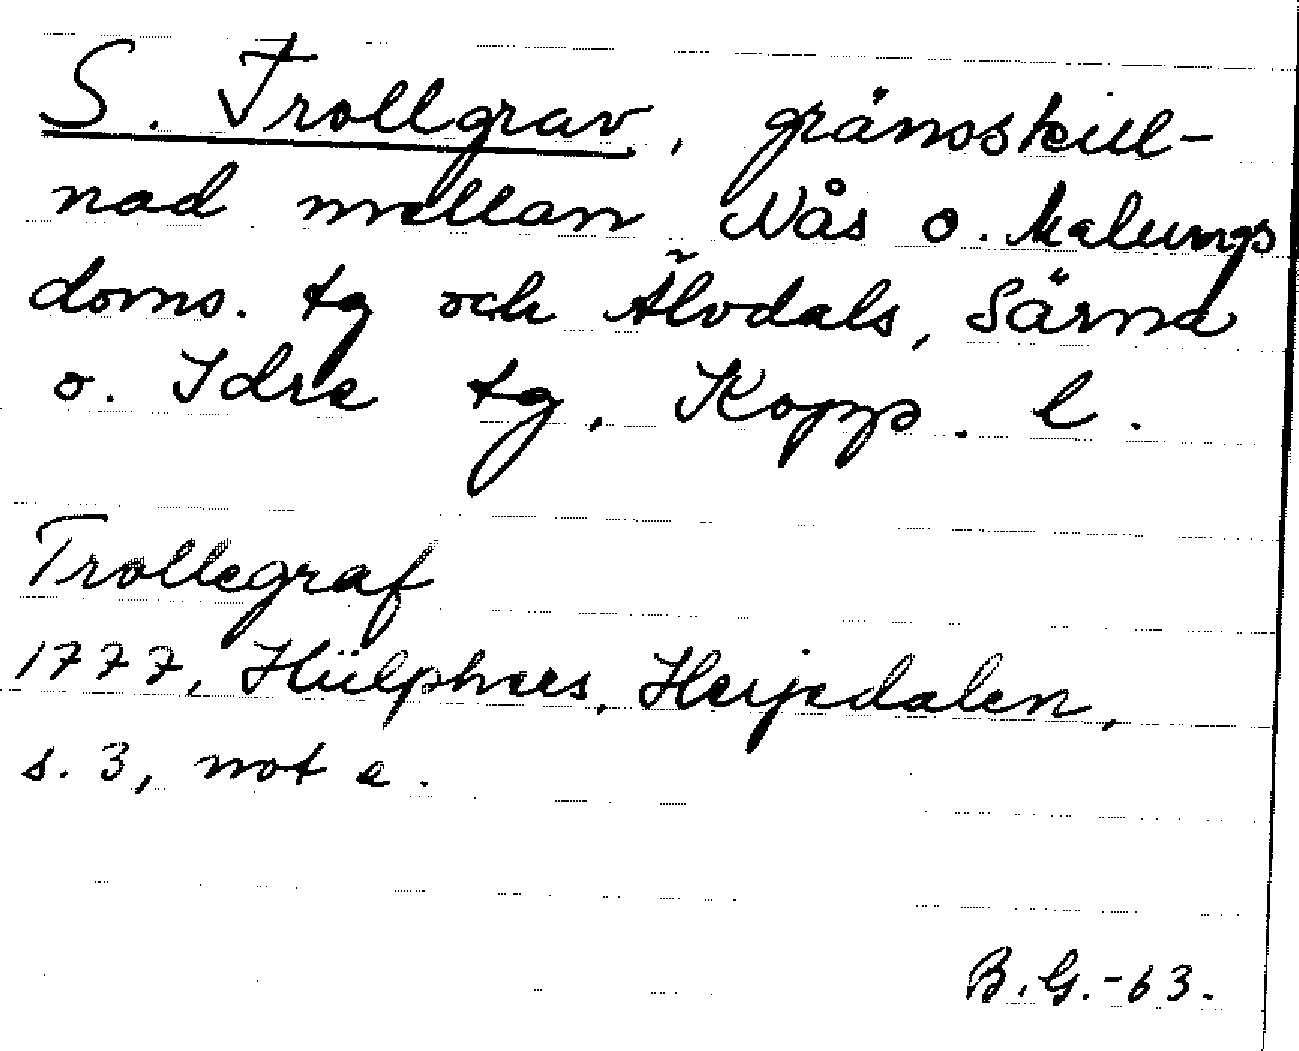 S. Trollgrav, gränsskill-
nad mellan Nås o. Malungs
doms. tg och Älvdals, Särna
o. Idre tg, Kopp. l.
Trollegraf
1777, Hülphers, Herjedalen,
s. 3, not a.
B.G.-63.